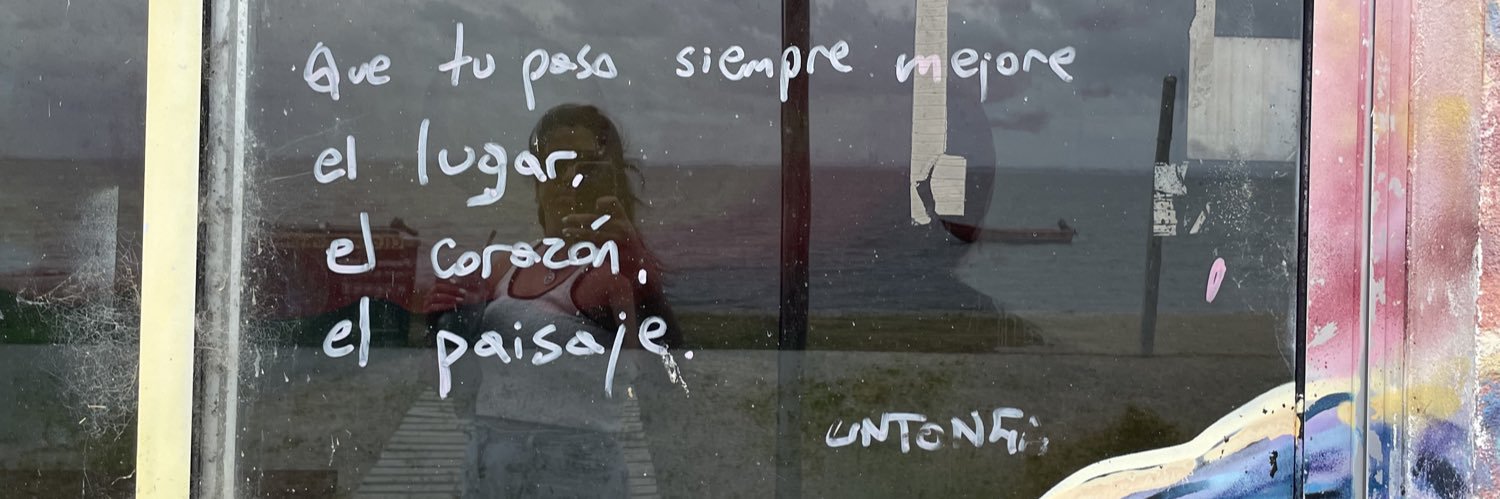 Que tu paso siempre mejore
el lugar,
el corazón,
el paisaje.